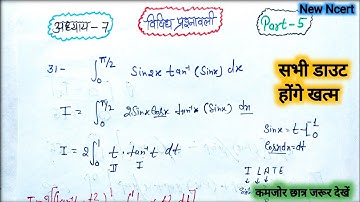 New Ncert
अध्याय-7
विविध प्रश्नावली
Part-5
31- ∫₀^π/2 Sin2x tan⁻¹(Sinx) dx
सभी डाउट
होंगे खत्म
I = ∫₀^π/2 2Sinx cosx tan⁻¹(Sinx) dx
Sinx = t
cosxdx = dt
I = 2∫₀¹ t. tan⁻¹t dt
II I
I L A T E
कमजोर छात्र जरूर देखें